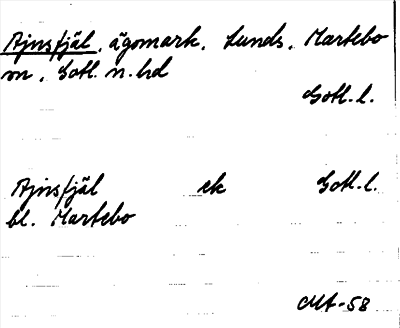 Ajnsfjäl, ägomark, Lunds, Martebo
sn, Gotl. n. hd
Gotl. l.
Ajnsfjäl ek Gotl. l.
bl. Martebo
Okt-58